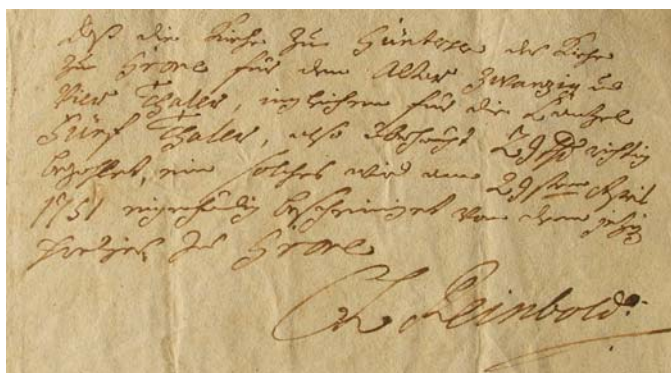 Daß die Kirche zu Güntersen der Kirche
zu Grone für den Altar zwanzig u
Vier Thaler, imgleichen für die Cantzel
Fünf Thaler, also überhaupt 29 rthl richtig
bezahlet, ein solches wird am 29sten April
1751 eigenhändig bescheiniget von dem
Prediger zu Grone
Reinbold